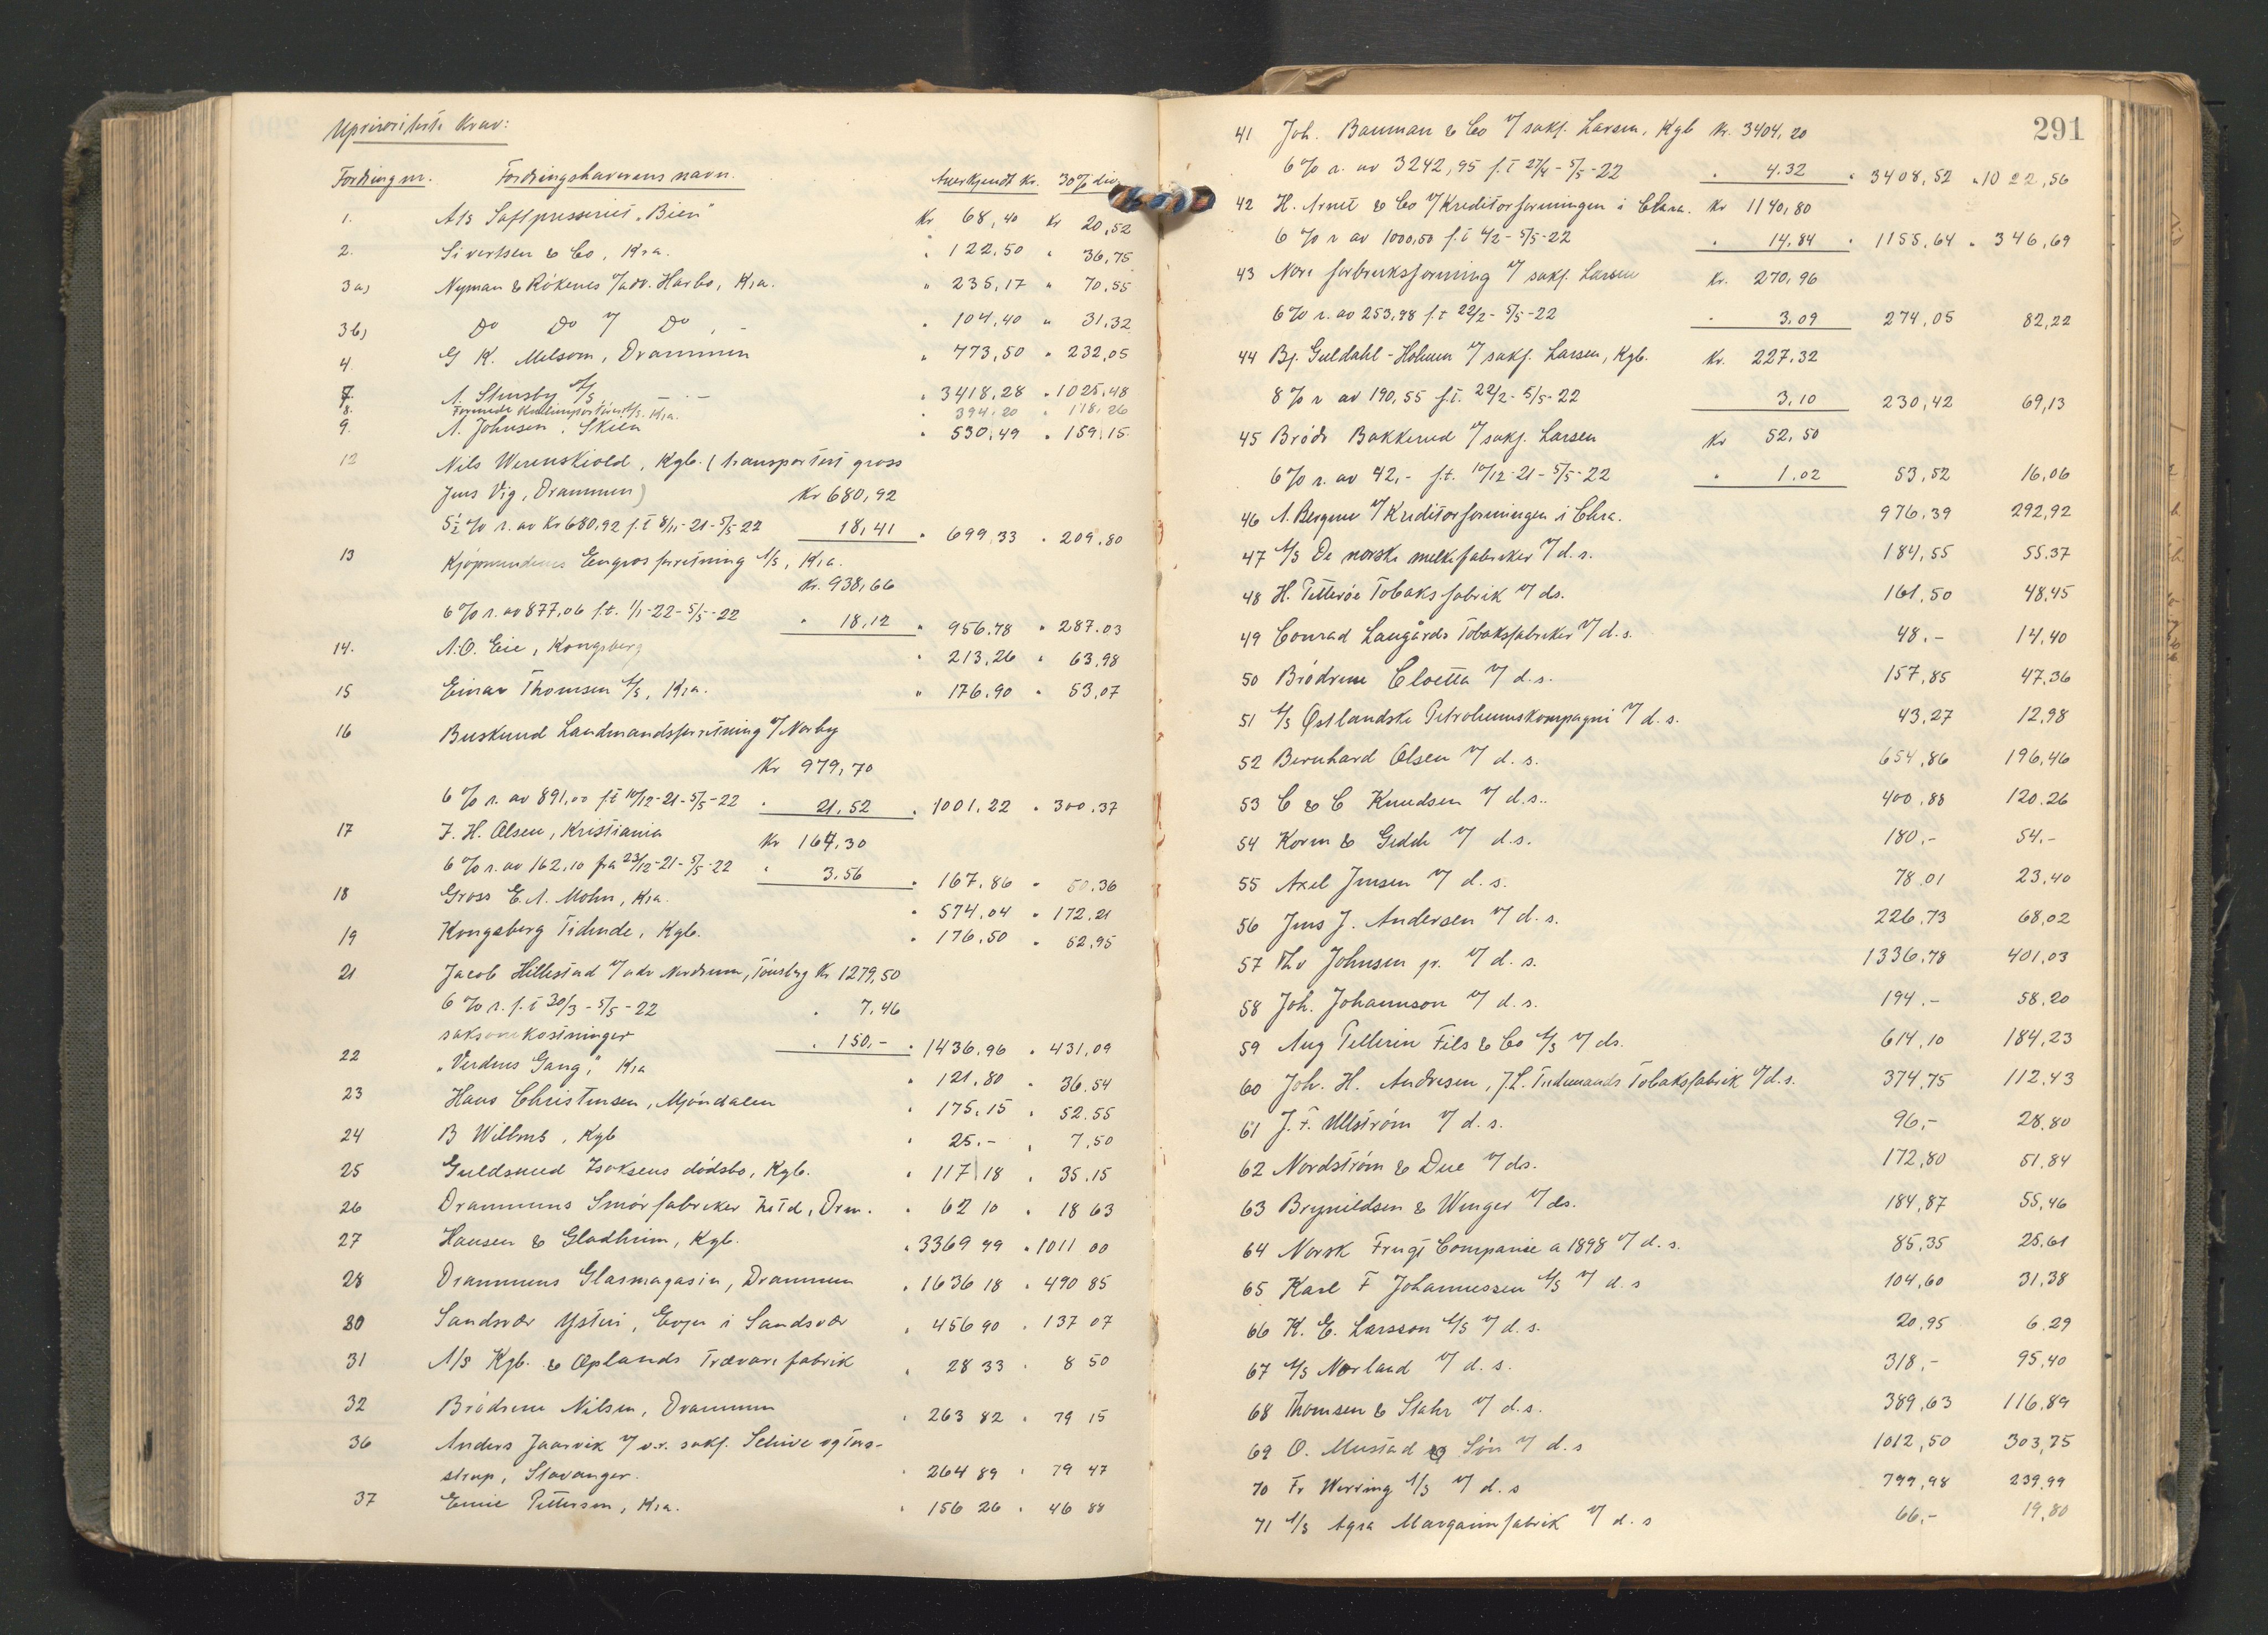 Uprioriterte Krav:
Fordring nr. Fordringshaverens navn. Anerkjendt Kr. 30% div
1. A/s Saftpresseriet „Bien" Kr 68,40 Kr 20,52
2. Sivertsen & Co, Kra. " 122,50 " 36,75
3a) Nyman & Rökenes v/adv. Harbo, Kra. " 235,17 " 70,55
3b) Do Do v/ Do, - " 104,40 " 31,32
4. G K. Melsom, Drammen " 773,50 " 232,05
7. A. Stensby A/s, - " 3418,28 " 1025,48
8. Forenede Kulimportører A/s. Kra. " 394,20 " 118,26
9. A. Johnsen, Skien " 530,49 " 159,15
12 Nils Werenskiold, Kgb. (transportert gross
Jens Vig, Drammen) Kr 680,92
5½% r. av Kr 680,92 f.t 8/11-21-5/5-22 18,41 " 699,33 " 209,80
13 Kjöpmændenes Engrosforretning A/s, Kra.
Kr. 938,66
6% r. av 877,06 f.t. 1/1-22-5/5-22 " 18,12 " 956,78 " 287.03
14. A.O. Eie, Kongsberg " 213,26 " 63,98
15 Einar Thomsen A/s, Kra. " 176.90 " 53,07
16 Buskerud Landmandsforretning v/Norby
Kr 979,70
6% r. av 891,00 f.t 10/12-21-5/5-22 " 21,52 " 1001,22 " 300,37
17 F. H. Olsen, Kristiania Kr 164,30
6% r. av 162,10 fra 23/12-21-5/5-22 " 3,56 " 167,86 " 50,36
18 Gross E. A. Mohn, Kra. " 574,04 " 172,21
19 Kongsberg Tidende, Kgb. " 176,50 " 52,95
21 Jacob Hillestad v/adv Nordrum, Tönsberg Kr 1279,50
6% r. f.t 30/3-5/5-22 " 7,46
saksomkostninger " 150,- " 1436,96 " 431,09
22 „Verdens Gang," Kra " 121,80 " 36.54
23 Hans Christensen, Mjöndalen " 175,15 " 52.55
24 B Wilbers, Kgb " 25.- " 7,50
25 Guldsmed Isaksens dödsbo, Kgb. " 117,18 " 35.15
26 Drammens Smörfabriker Ltd, Drm. " 62 10 " 18 63
27 Hansen & Gladheim, Kgb. " 3369 99 " 1011 00
28 Drammens Glasmagasin, Drammen " 1636 18 " 490 85
30 Sandsvær Ysteri, Evju i Sandsvær " 456 90 " 137 07
31 A/s Kgb. & Oplands Trævarefabrik " 28 33 " 8 50
32 Brödrene Nilsen, Drammen " 263 82 " 79 15
36 Anders Jaarvik v/o.r. sakf. Schive og Tas-
strup, Stavanger. " 264 89 " 79 47
37 Emil Pettersen, Kra. " 156 26 " 46 88
291
41 Joh. Bauman & Co v/ sakf. Larsen, Kgb Kr. 3404,20
6% r. av 3242,95 f.t 27/4-5/5-22 " 4.32 " 3408,52 " 1022,56
42 H. Arnet & Co v/ Kreditorforeningen i Chra. Kr 1140,80
6% r av 1000,50 f.t 4/2-5/5-22 " 14,84 " 1155,64 " 346,69
43 Nore forbruksforening v/ sakf. Larsen Kr. 270,96
6% r. av 253,98 f.t 22/2-5/5-22 " 3,09 274,05 82,22
44 Bj. Guldahl-Holmen v/ sakf. Larsen, Kgb. Kr. 227,32
8% r av 190,55 f.t. 22/2-5/5-22 3,10 230,42 69,13
45 Brödr Bakkerud v/ sakf. Larsen Kr 52,50
6% r. av 42,- f.t. 10/12-21-5/5-22 " 1.02 53,52 16,06
46 A. Bergene v/ Kreditorforeningen i Chra. 976,39 292,92
47 A/s De norske melkefabriker v/ d.s. 184,55 55.37
48 H. Petteröe Tobaksfabrik v/ ds. 161,50 48,45
49 Conrad Langårds Tobaksfabriker v/ d.s. 48,- 14,40
50 Brödrene Cloetta v/ d.s. 157,85 47,36
51 A/s Østlandske Petroleumskompagni v/ d.s. 43,27 12,98
52 Bernhard Olsen v/ d.s. 654,86 196,46
53 C & C Knudsen v/ d.s.. 400,88 120.26
54 Koren & Gedde v/ d.s. 180,- 54,-
55 Axel Jensen v/ d.s. 78,01 23,40
56 Jens J. Andersen v/ d.s. 226,73 68,02
57 Thv Johnsen jr. v/ d.s. 1336,78 401,03
58 Joh. Johannson v/ d.s. 194,- 58,20
59 Aug Pellerin Fils & Co A/s v/ ds. 614,10 184,23
60 Joh. H. Andresen, J.L. Tiedemands Tobaksfabrik v/d.s. 374,75 112,43
61 J. F. Ullström v/ d.s. 96,- 28,80
62 Nordström & Due v/ ds. 172,80 51,84
63 Brynildsen & Winger v/ ds. 184,87 55,46
64 Norsk Frugt Companie a 1898 v/ d.s. 85,35 25,61
65 Karl F Johannessen A/s v/ d.s 104,60 31,38
66 K. E. Larsson A/s v/ d.s. 20,95 6.29
67 A/s Norland v/ d.s. 318,- 95,40
68 Thomsen & Stahr v/ d.s. 389,63 116,89
69 O. Mustad & Sön v/ d.s 1012,50 303,75
70 Fr Werring A/s v/ d.s 799,98 239,99
71 A/s Agra Margarinfabrik v/ d.s 66,- 19,80